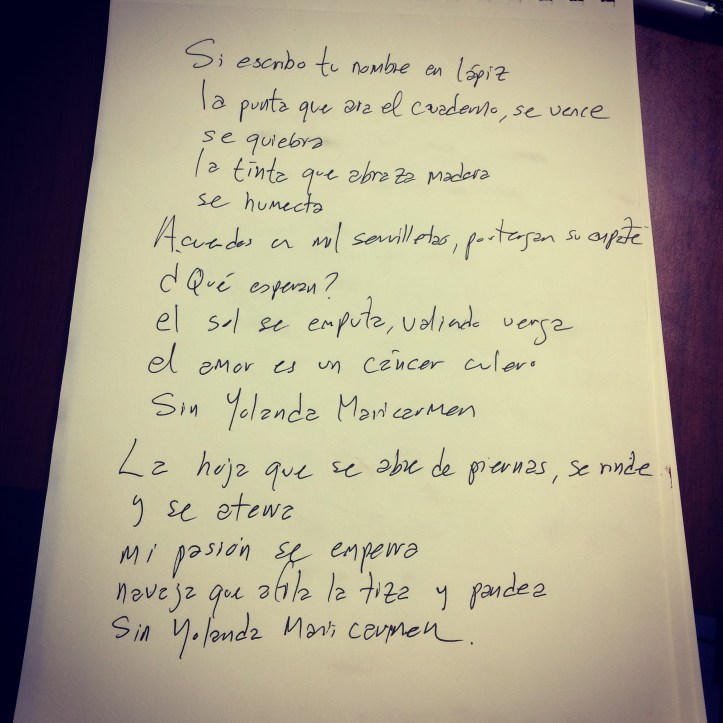 Si escribo tu nombre en lápiz
la punta que ara el cuaderno, se vence
se quiebra
la tinta que abraza madera
se humecta
Acuerdos en mil servilletas, postergan su empate
¿Qué esperan?
el sol se emputa, valiendo verga
el amor es un cáncer culero
Sin Yolanda Maricarmen
La hoja que se abre de piernas, se rinde
y se aterra
mi pasión se emperra
navaja que afila la tiza y pandea
Sin Yolanda Maricarmen.